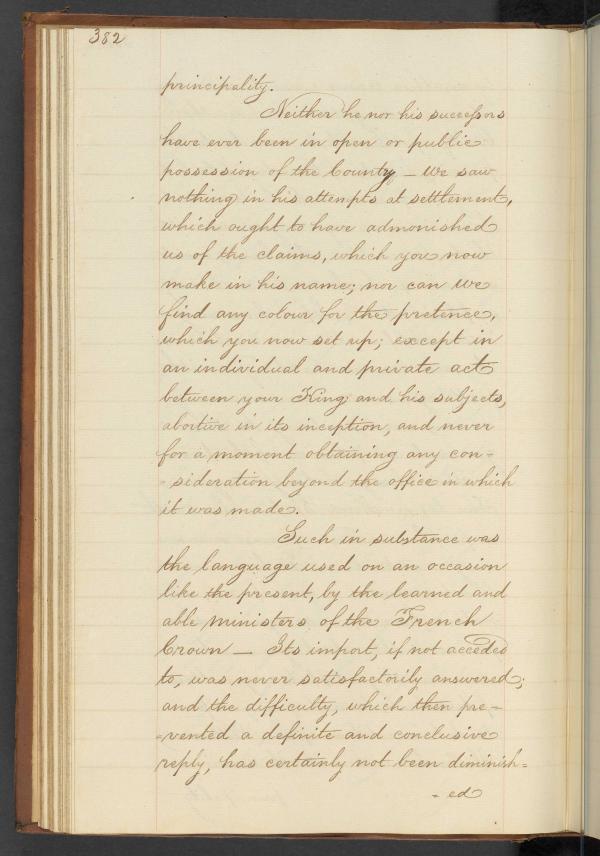 382
principality.
Neither he nor his successors
have ever been in open or public
possession of the County — We saw
nothing in his attempts at settlement,
which ought to have admonished
us of the claims, which you now
make in his name; nor can we
find any colour for the pretence,
which you now set up; except in
an individual and private act
between your King and his subjects,
abortive in its inception, and never
for a moment obtaining any con-
-sideration beyond the office in which
it was made.
Such in substance was
the language used on an occasion
like the present, by the learned and
able ministers of the French
Crown — Its import, if not acceded
to, was never satisfactorily answered;
and the difficulty, which then pre=
=vented a definite and conclusive
reply, has certainly not been diminish=
-ed